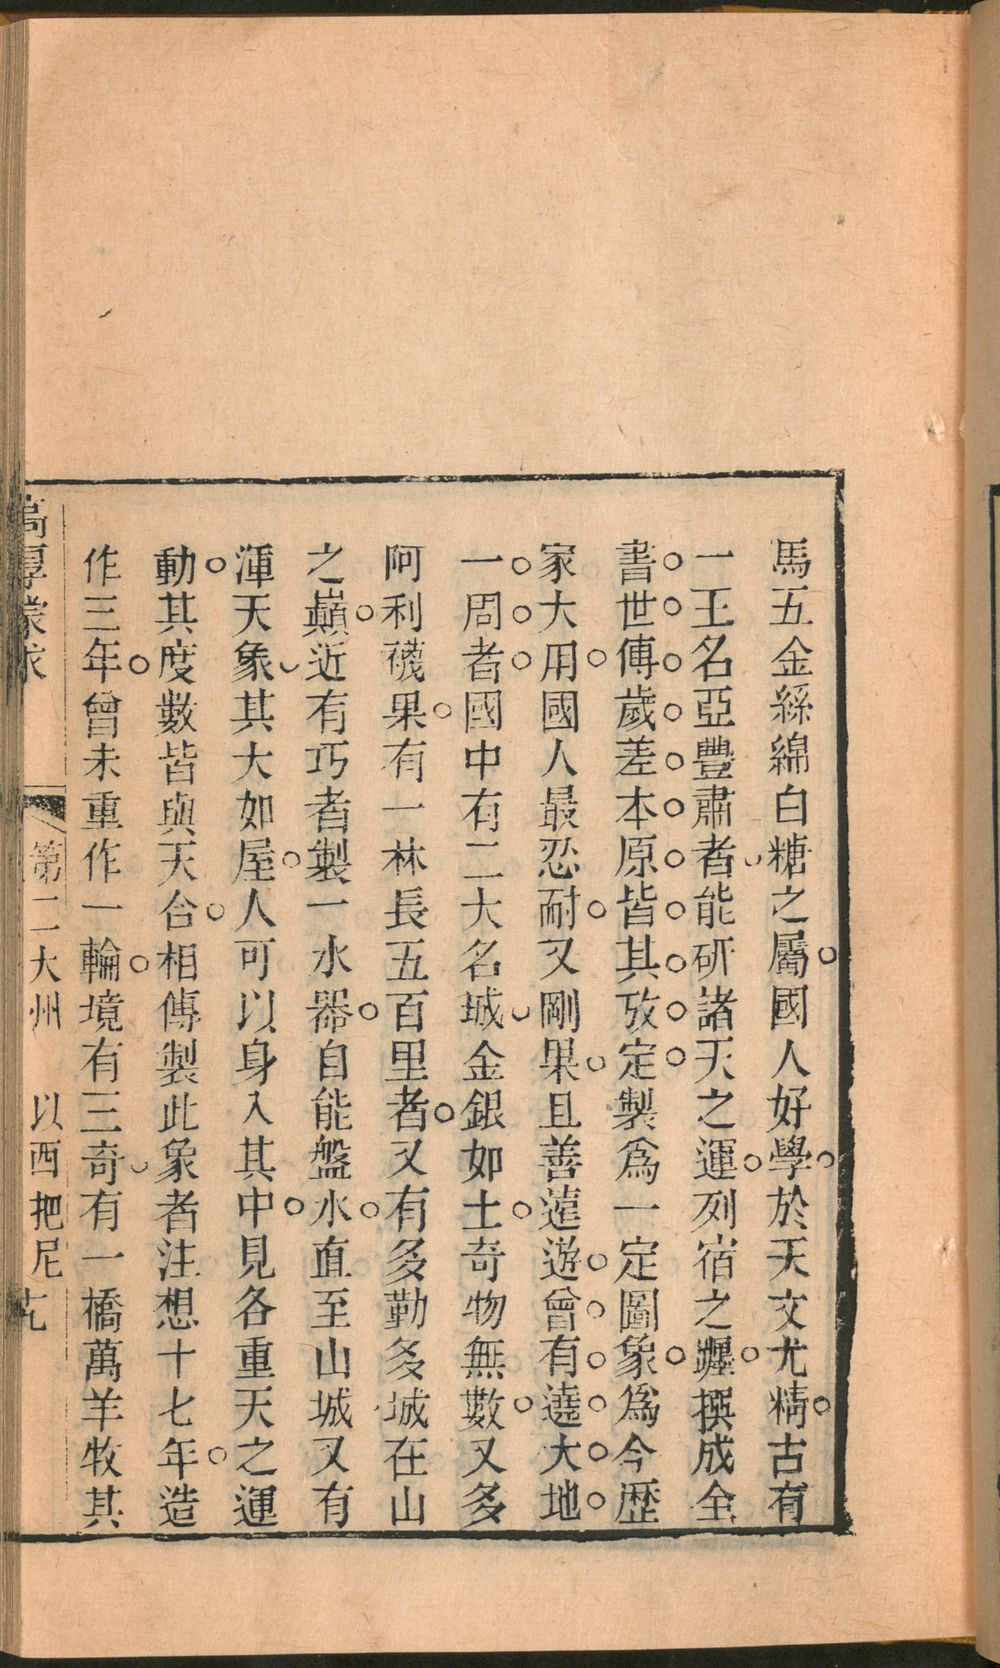 馬五金絲綿白糖之屬國人好學於天文尤精古有
一王名亞豐肅者能研諸天之運列宿之躔撰成全
書世傳歲差本原皆其攷定製爲一定圖象爲今歴
家大用國人最忍耐又剛果且善遠遊曾有遶大地
一周者國中有二大名城金銀如土奇物無數又多
阿利襪果有一林長五百里者又有多勤多城在山
之巔近有巧者製一水器自能盤水直至山城又有
渾天象其大如屋人可以身入其中見各重天之運
動其度數皆與天合相傳製此象者注想十七年造
作三年曾未重作一輪境有三奇有一橋萬羊牧其
高厚蒙求 第二大州 以西把尼亞